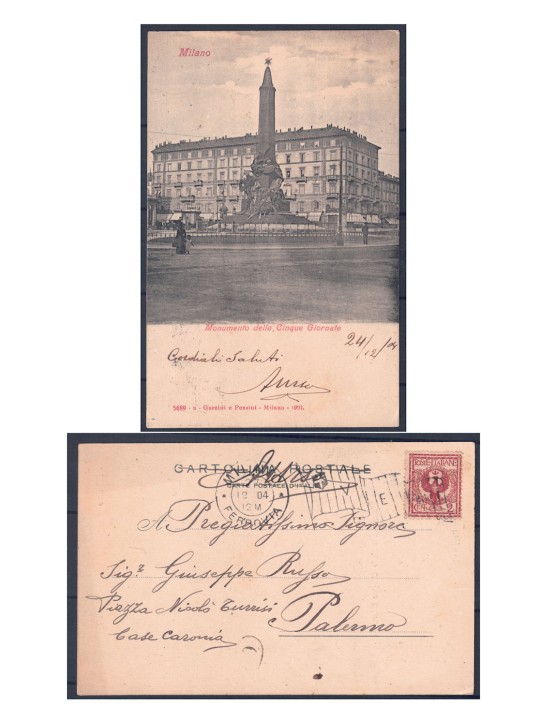 Milano
Monumento delle Cinque Giornate
24/12/04
Cordiali Saluti
5689 - a - Garzini e Pezzini - Milano - 1901.
CARTOLINA POSTALE
CARTE POSTALE D'ITALIE
12 04
12M
FERROVIA
POSTE ITALIANE
A Pregiatissimo Signore
Sigr Giuseppe Russo
Piazza Nicolò Turrisi
Palermo
Case Caronia